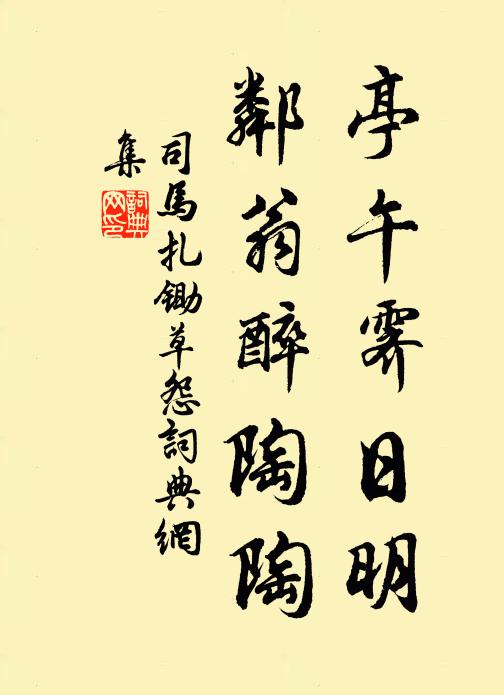 亭午霽日明
鄰翁醉陶陶
司馬扎鋤草怨詞典網
集
詞典網印